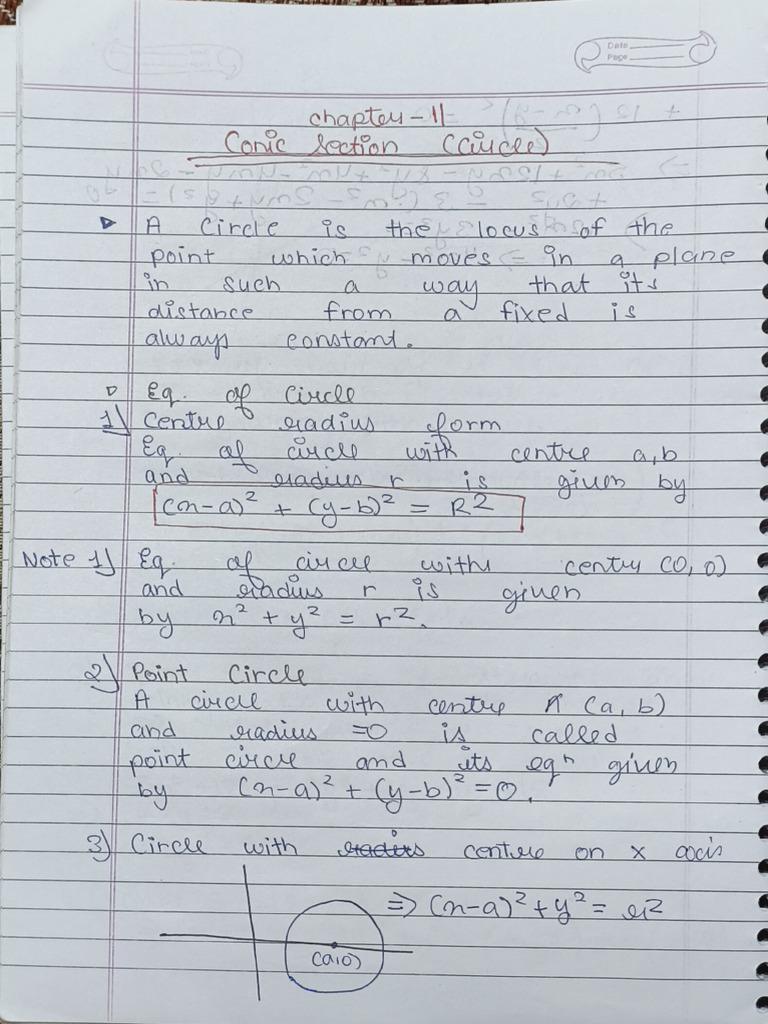 Date
Page
chapter-11
Conic Section (Circle)
A Circle is the locus of the
point which moves in a plane
in such a way that its
distance from a fixed is
always constant.
Eq. of Circle
1) Centre radius form
Eq of circle with centre a,b
and radius r is given by
(x-a)² + (y-b)² = R²
Note 1) Eq. of circle with centre (0,0)
and radius r is given
by x² + y² = r².
2) Point Circle
A circle with centre (a, b)
and radius =0 is called
point circle and its eqⁿ given
by (x-a)² + (y-b)² = 0.
3) Circle with centre on x axis
⇒ (x-a)² + y² = r²
(a,0)